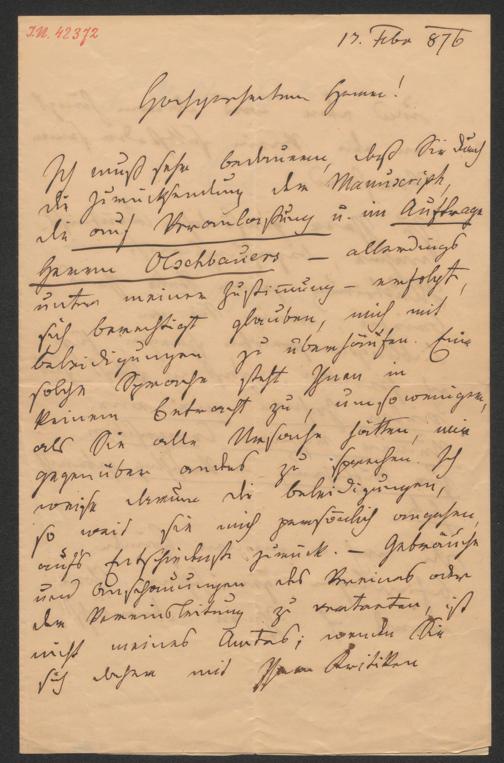 I.N. 42372
17. Febr 876
Hochgeehrtester Herr!
Ich muß sehr bedauern, daß Sie durch
die Zurücksendung der Manuscripte,
die auf Veranlassung u. im Auftrage
Herrn Olschbauers — allerdings
unter meiner Zustimmung — erfolgt,
sich berechtigt glauben, mich mit
Beleidigungen zu überhäufen. Eine
solche Sprache steht Ihnen in
keinem Betracht zu, umsoweniger,
als Sie alle Ursache hätten, mir
gegenüber anders zu sprechen. Ich
weise darum die Beleidigungen,
so weit sie mich persönlich angehen,
aufs Entschiedenste zurück. — Gebräuche
und Anschauungen des Vereines oder
der Vereinsleitung zu vertreten, ist
nicht meines Amtes; wenden Sie
sich daher mit Ihren Kritiken